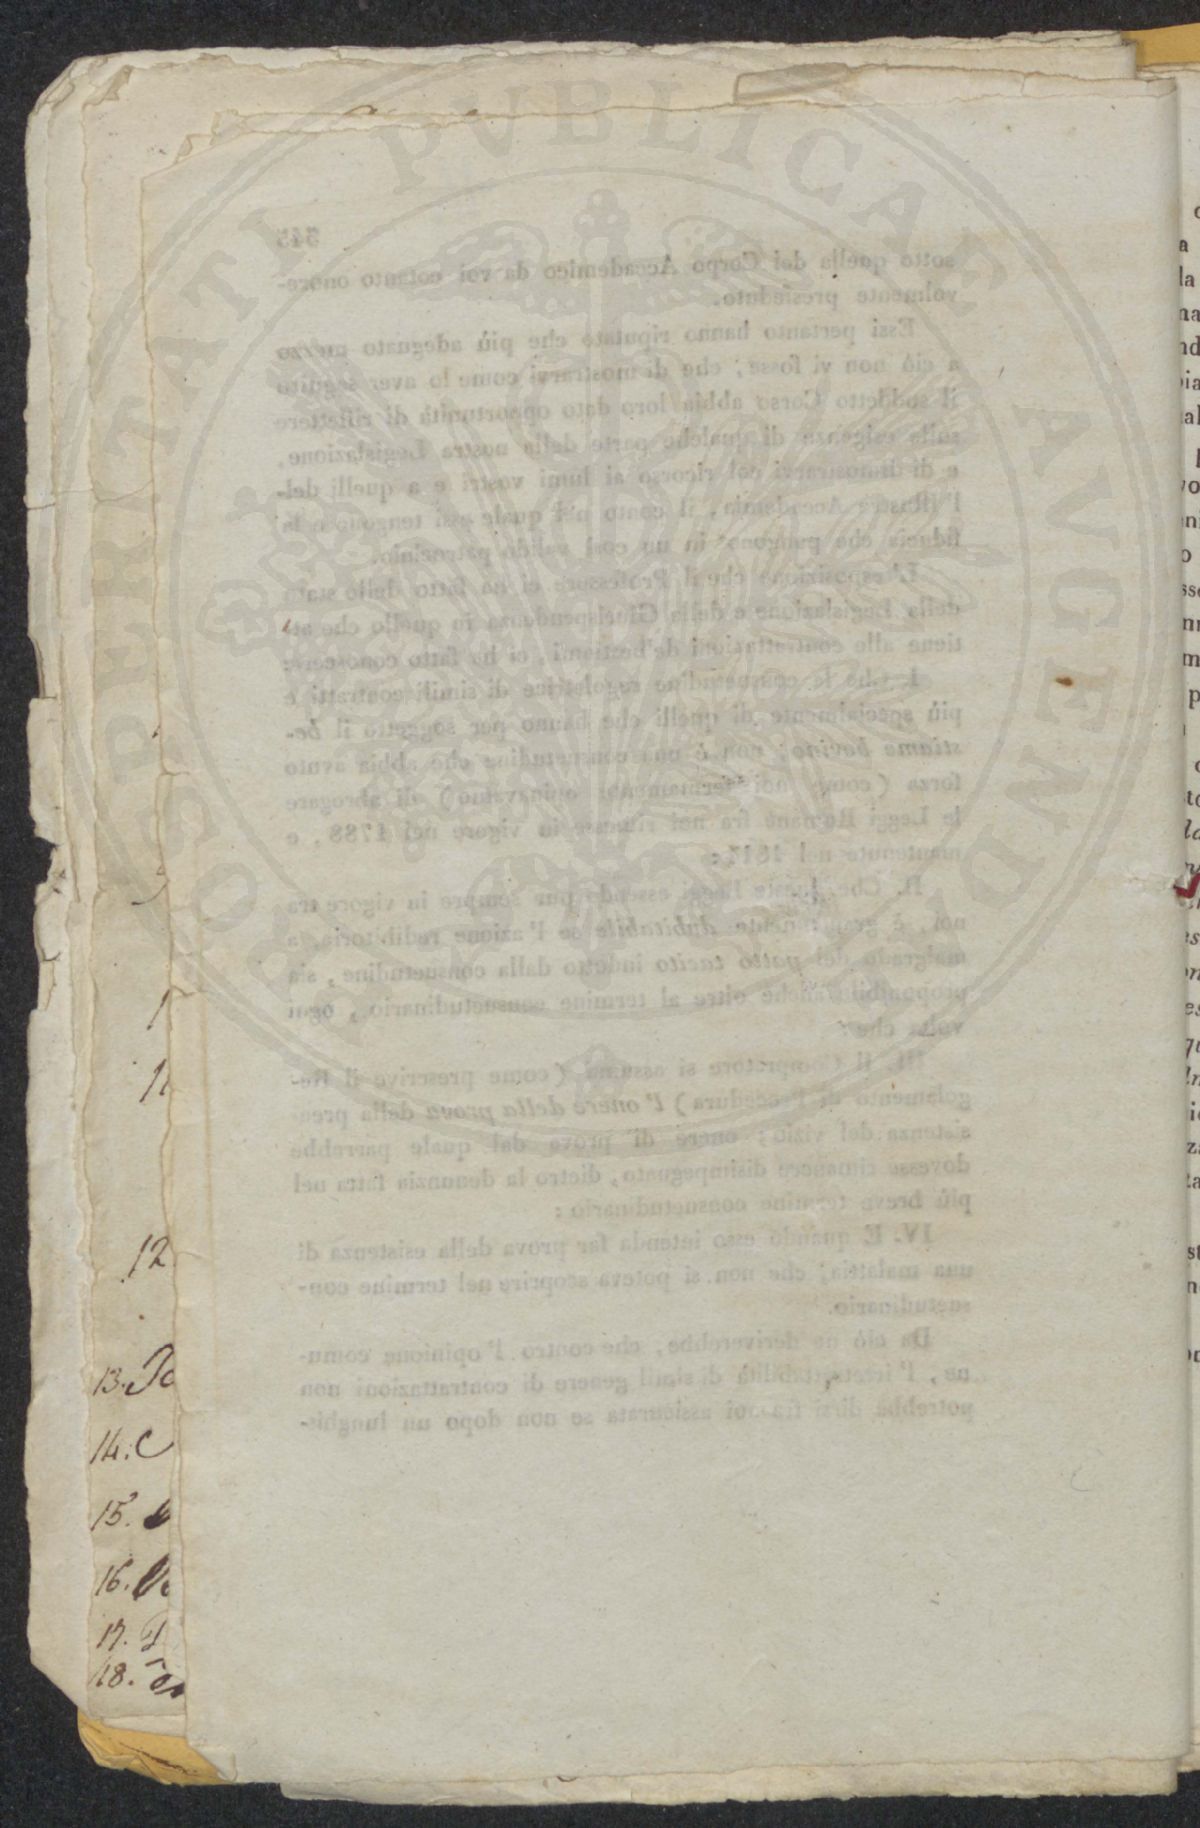 PVBLICAE
PROSPERITATI
AVGENDAE
345
sotto quella del Corpo Accademico da voi cotanto onore-
volmente presieduto.
Essi pertanto hanno riputato che più adeguato mezzo
a ciò non vi fosse, che di mostrarvi come lo aver seguito
il suddetto Corso abbia loro dato opportunità di riflettere
sulla esigenza di qualche parte della nostra Legislazione,
e di dimostrarvi col ricorso ai lumi vostri e a quelli del-
l'illustre Accademia, il conto nel quale essi tengono e la
fiducia che pongono in un così valido patrocinio.
L'esposizione che il Professore ci ha fatto dello stato
della Legislazione e della Giurisprudenza in quello che at-
tiene alle contrattazioni de' bestiami, ci ha fatto conoscere:
I. Che la consuetudine regolatrice di simili contratti e
più specialmente di quelli che hanno per soggetto il be-
stiame bovino; non è una consuetudine che abbia avuto
forza (come noi fermamente opinavamo) di abrogare
le Leggi Romane fra noi rimesse in vigore nel 1788, e
mantenute nel 1817:
II. Che queste Leggi essendo pur sempre in vigore tra
noi, è grandemente dubitabile se l'azione redibitoria, a
malgrado del patto tacito indotto dalla consuetudine, sia
proponibile anche oltre al termine consuetudinario, ogni
volta che:
III. Il Compratore si assuma (come prescrive il Re-
golamento di Procedura) l'onere della prova della pree-
sistenza del vizio; onere di prova dal quale parrebbe
dovesse rimanere disimpegnato, dietro la denunzia fatta nel
più breve termine consuetudinario:
IV. E quando esso intenda far prova della esistenza di
una malattia, che non si poteva scoprire nel termine con-
suetudinario.
Da ciò ne deriverebbe, che contro l'opinione comu-
ne, l'irretrattabilità di simil genere di contrattazioni non
potrebbe dirsi fra noi assicurata se non dopo un lunghis-
12
13.
14.
15.
16.
17.
18.